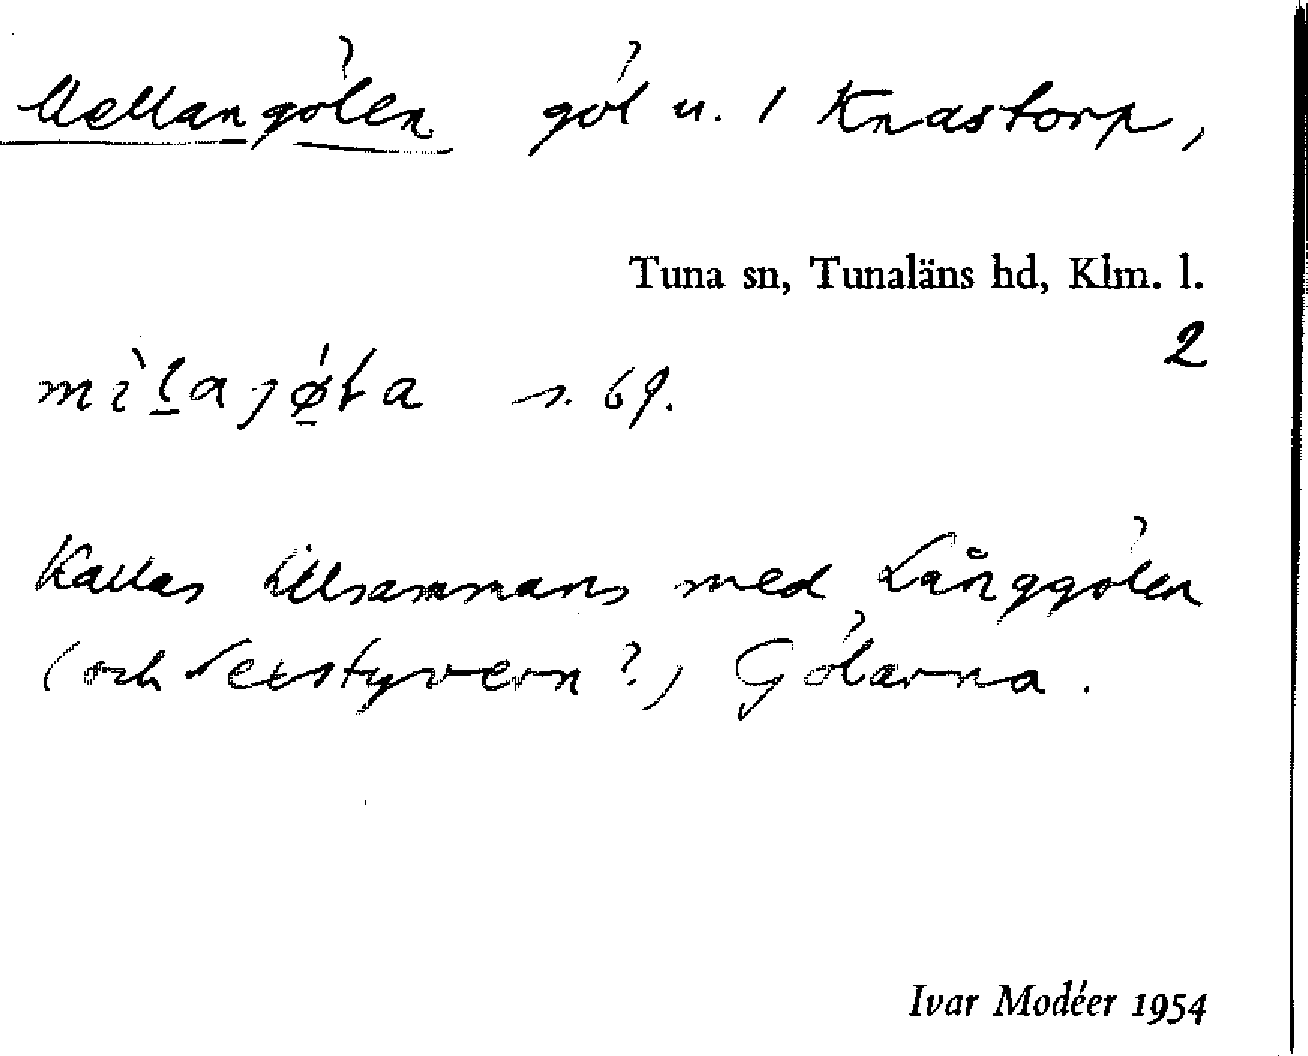 Mellangölen göl u. 1 Knastorp,
Tuna sn, Tunaläns hd, Klm. l.
2
s. 69.
Kallas tillsammans med Långgölen
(och ?) Gölarna.
Ivar Modéer 1954